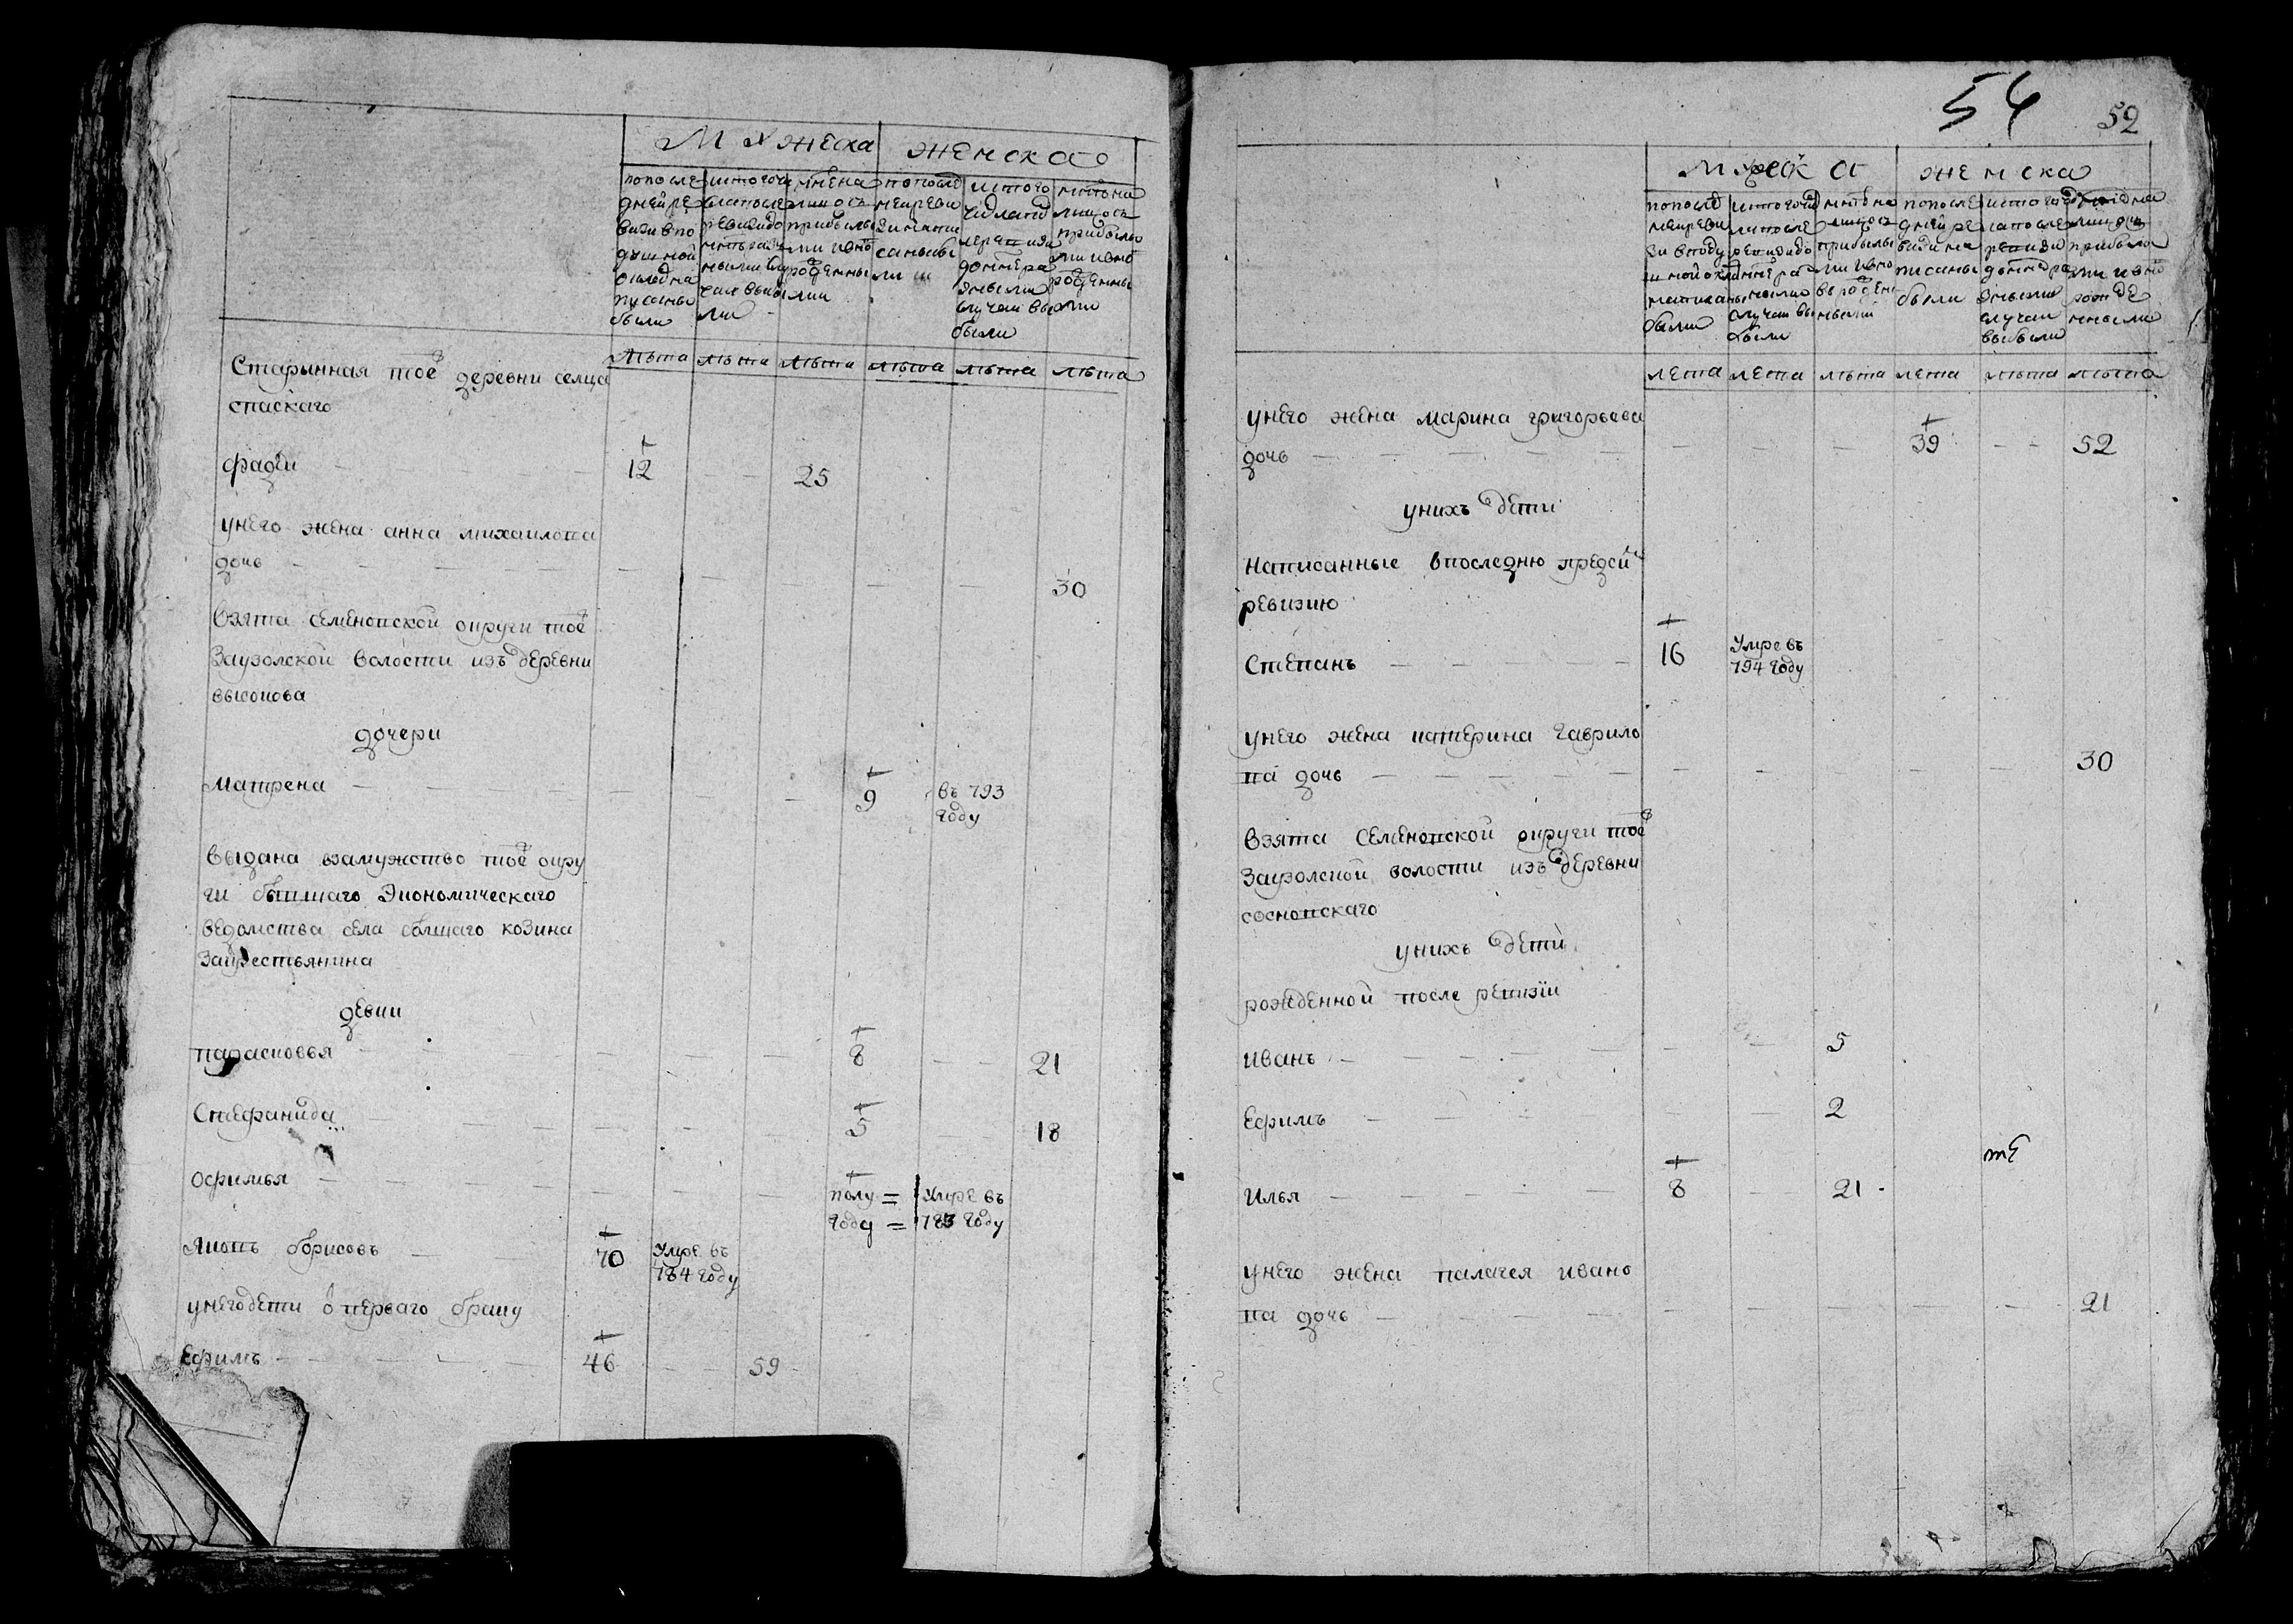 Мужеска женскаго
попосле
дней ре
визи впо
душной
окладна
писаны
были
изтого чи
сла после
ревизидо
ными слу
чаи выбы
ли
нне на
лицось
прибылы
ми ивно
рожденны
ми
попослед
ней реви
зи напи
саны бы
ли
изтого
числапо
сле ревизи
разными
случаи вы
были
нне на
лицось
прибылы
ми ивно
рожденны
ми
лѣта лѣта лѣта лѣта лѣта лѣта
Старынная тое деревни селца
спаскаго
фадеи 12 25
унего жена анна михаилова
дочь 30
Взята семеновской округи тое
Заузолской волости изъ деревни
высокова
дочери
Матрена 9 въ 793
году
выдана взамужство тое окру
ги бывшаго Экономическаго
ведомства села болшаго козина
закрестьянина
девки
парасковья 8 21
Стефанида 5 18
офимья полу = Умре въ
году = 783 году
Яковъ борисовъ 70 Умре въ
784 году
унегодети о перваго браку
Ефимъ 46 59
54 52
Мужеска женска
попослед
ней реви
зи вподу
шной окла
написаны
были
нне на
лицось
прибылы
ми ивно
попосле
дней ре
визи на
писаны
были
разными
случаи
выбыли
лета лета лѣта лета лѣта лѣта
унего жена марина григорьева
дочь 39 52
унихъ дети
написанные впоследню предсию
ревизию
Степанъ 16 Умре въ
794 году
унего жена катерина гаврило
ва дочь 30
взята Семеновской округи тое
Заузолской волости изъ деревни
сосновскаго
унихъ дети
рожденной после ревизiи
иванъ 5
Ефимъ 2
те
илья 8 21
унего жена палагея ивано
ва дочь 21